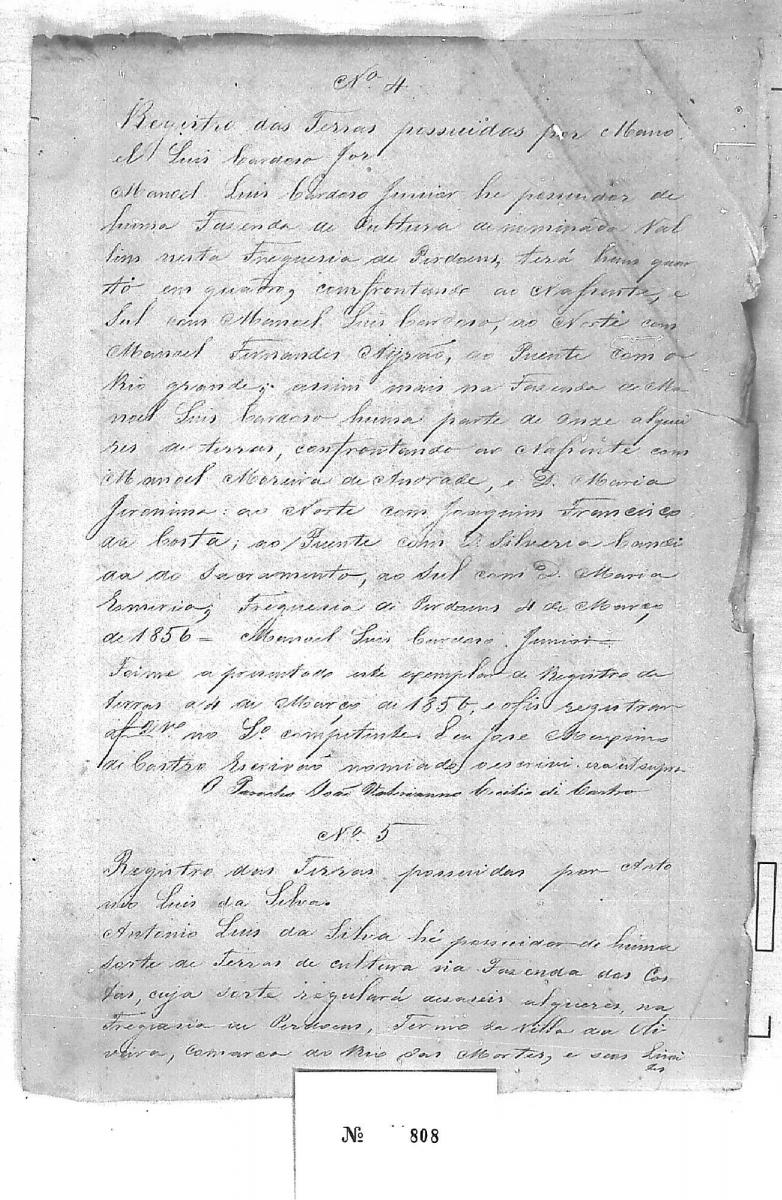 Nº 4
Registro das Terras possuidas por Mano
el Luis Cardoso Jor
Manoel Luis Cardoso Junior he possuidor de
huma Fazenda de Cultura denominada Val
lim nesta Freguesia de Perdoens, terá hum quar
to em quadro, comfrontando ao Nafrente, e
Sul com Manoel Luis Cardoso, ao Norte com
Manoel Fernandes Ayrão, ao Puente com o
Rio grande; assim mais na Fazenda de Ma
noel Luis Cardoso huma parte de onze alquei
res de terras, confrontando ao Nafrente com
Manoel Moreira de Andrade, e D. Maria
Jeronima: ao Norte com Joaquim Francisco
da Costa; ao Puente com D. Silveria Candi
da do Sacramento, ao Sul com D. Maria
Esmeria; Freguesia de Perdoens 4 de Março
de 1856 - Manoel Luis Cardoso Junior
Foime apresentado este exemplar de Registro de
terras a 4 de Março de 1856, e ofis registrar
no Lº competente. Eu Jose Maximo
de Castro Escrivão nomiado, o escrivi. era ut supra
O Parocho João Cecilia di Castro
Nº 5
Registro das Terras possuidas por Anto
nio Luis da Silva
Antonio Luis da Silva hé possuidor de huma
sorte de Terras de cultura na Fazenda das Cos
tas, cuja sorte regulará desaseis alqueres, na
Freguesia de Perdoens, Termo da Villa da Oli
veira, comarca do Rio das Mortes, e seus Limi
tes
Nº 808